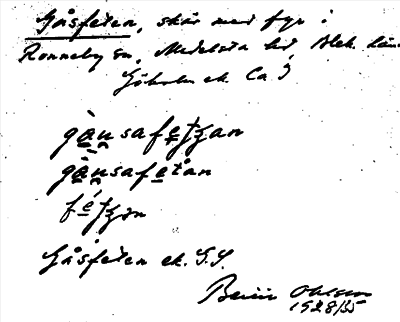 Gåsfeten, skär med fyr i
Ronneby sn, Medelsta hd, Blek. län
Göholm ek. Ca 9
gau̯safeʈʂan
gau̯safetån
féʈʂən
Gåsfeten ek. G.S.
Bengt Ohlsson
1928/35